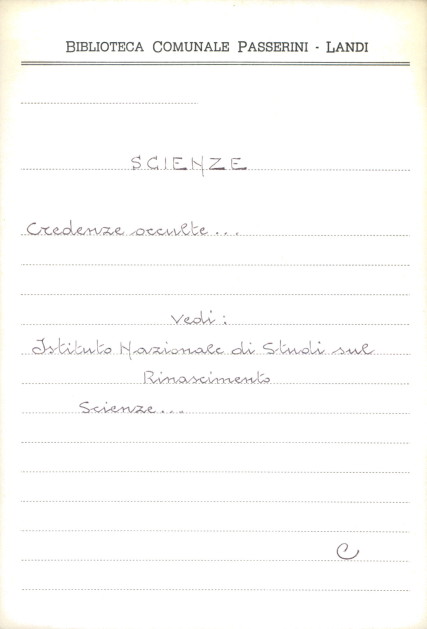 BIBLIOTECA COMUNALE PASSERINI - LANDI
SCIENZE
Credenze occulte...
Vedi:
Istituto Nazionale di Studi sul
Rinascimento
Scienze...
C